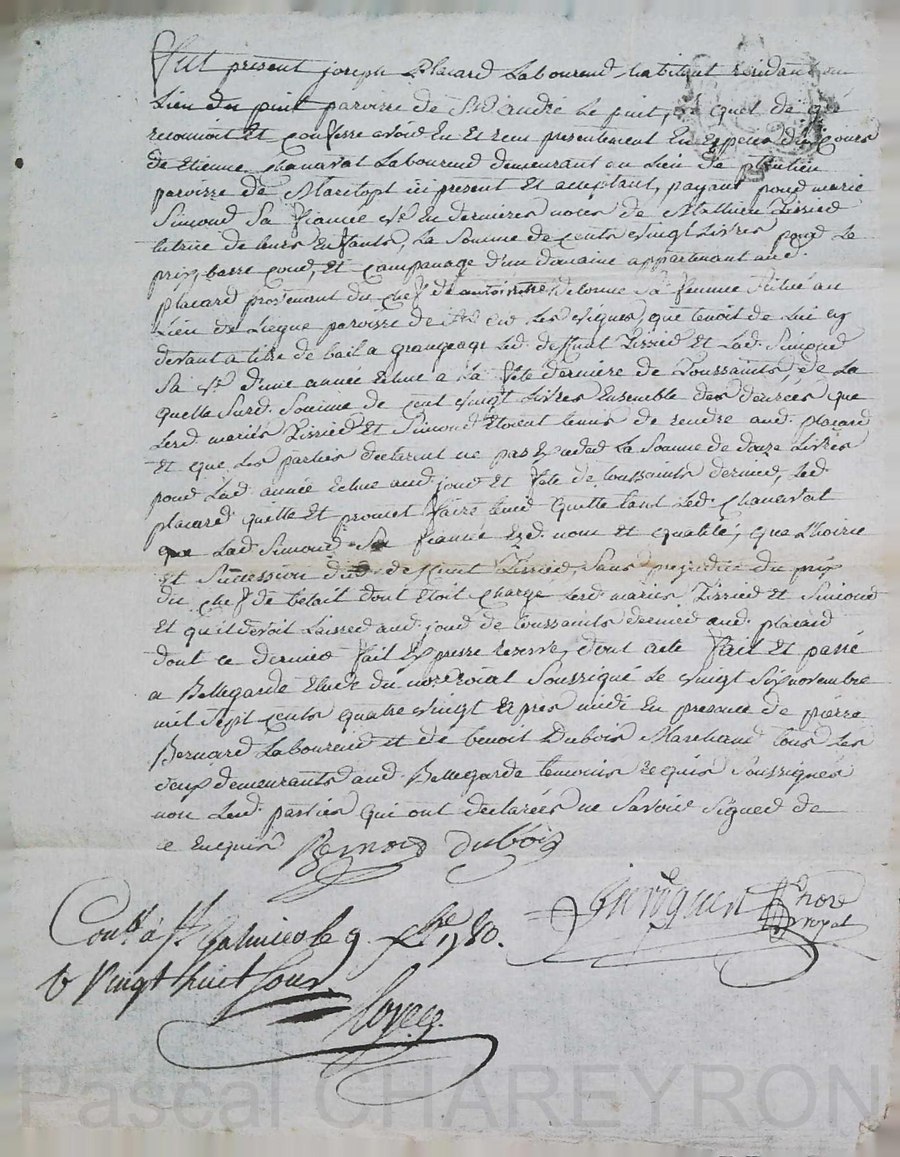 Fut présent joseph Placard Laboureur habitant résidant au
Lieu du puit paroisse de St andré Le puit, Lequel de gré
reconnoit Et confesse avoir Eu Et recu presentement En Especes du Cours
de Etienne chanavat Laboureur demeurant au Lieu de
paroisse de Maritopt ici present Et aceptant, payant pour marie
Simond Sa fiancée vve En dernieres noces de Mathieu Tissied
tutrice de leurs Enfants, La Somme de cents vingt Livres pour Le
prix, basse cour, Et Campanage d'un domaine appartenant aud.
placard provenant du Chef de antoinette delorme Sa femme Situé au
Lieu de Liegue paroisse de Les vignes, que tenoit de Lui cy
devant a titre de bail a grangeage Led. deffunt Tissied Et Lad. Simond
Sa vve d'une année Echue a La fête derniere de Toussaints, de La
quelle Surd. Somme de Cent vingt Livres Ensemble des denrées que
Lesd. mariés Tissied Et Simond Etoient tenus de rendre aud. placard
Et que Les parties declarent ne pas Exceder La Somme de douze Livres
pour Lad. année Echue aud. jour Et fête de toussaints dernier, Led.
placard quitte Et promet faire tenir quitte tant Led. Chanavat
que Lad. Simond Sa fiancée Esd. nom et qualité, que L'hoirie
Et Succession dud. deffunt Tissied, Sans prejudice du prix
du chef de betail dont Etoit Chargé Lesd. mariés Tissied Et Simond
Et qu'il devoit Laisser aud. jour de toussaints dernier aud. placard
dont ce dernier fait Expresse reserve, dont acte fait Et passé
a Bellegarde Etude du nore roial Soussigné Le vingt Six novembre
mil Sept Cents quatre vingt apres midi En presence de pierre
Bernard Laboureur et de benoit Dubois Marchand tous Les
deux demeurants aud. Bellegarde temoins requis Soussignés
non Lesd. parties qui ont declarées ne Savoir Signer de
ce Enquis Bernard Dubois
nore
royal
Contlé à St Galmier le 9 xbre 1780.
Vingt huit sous
Pascal CHAREYRON